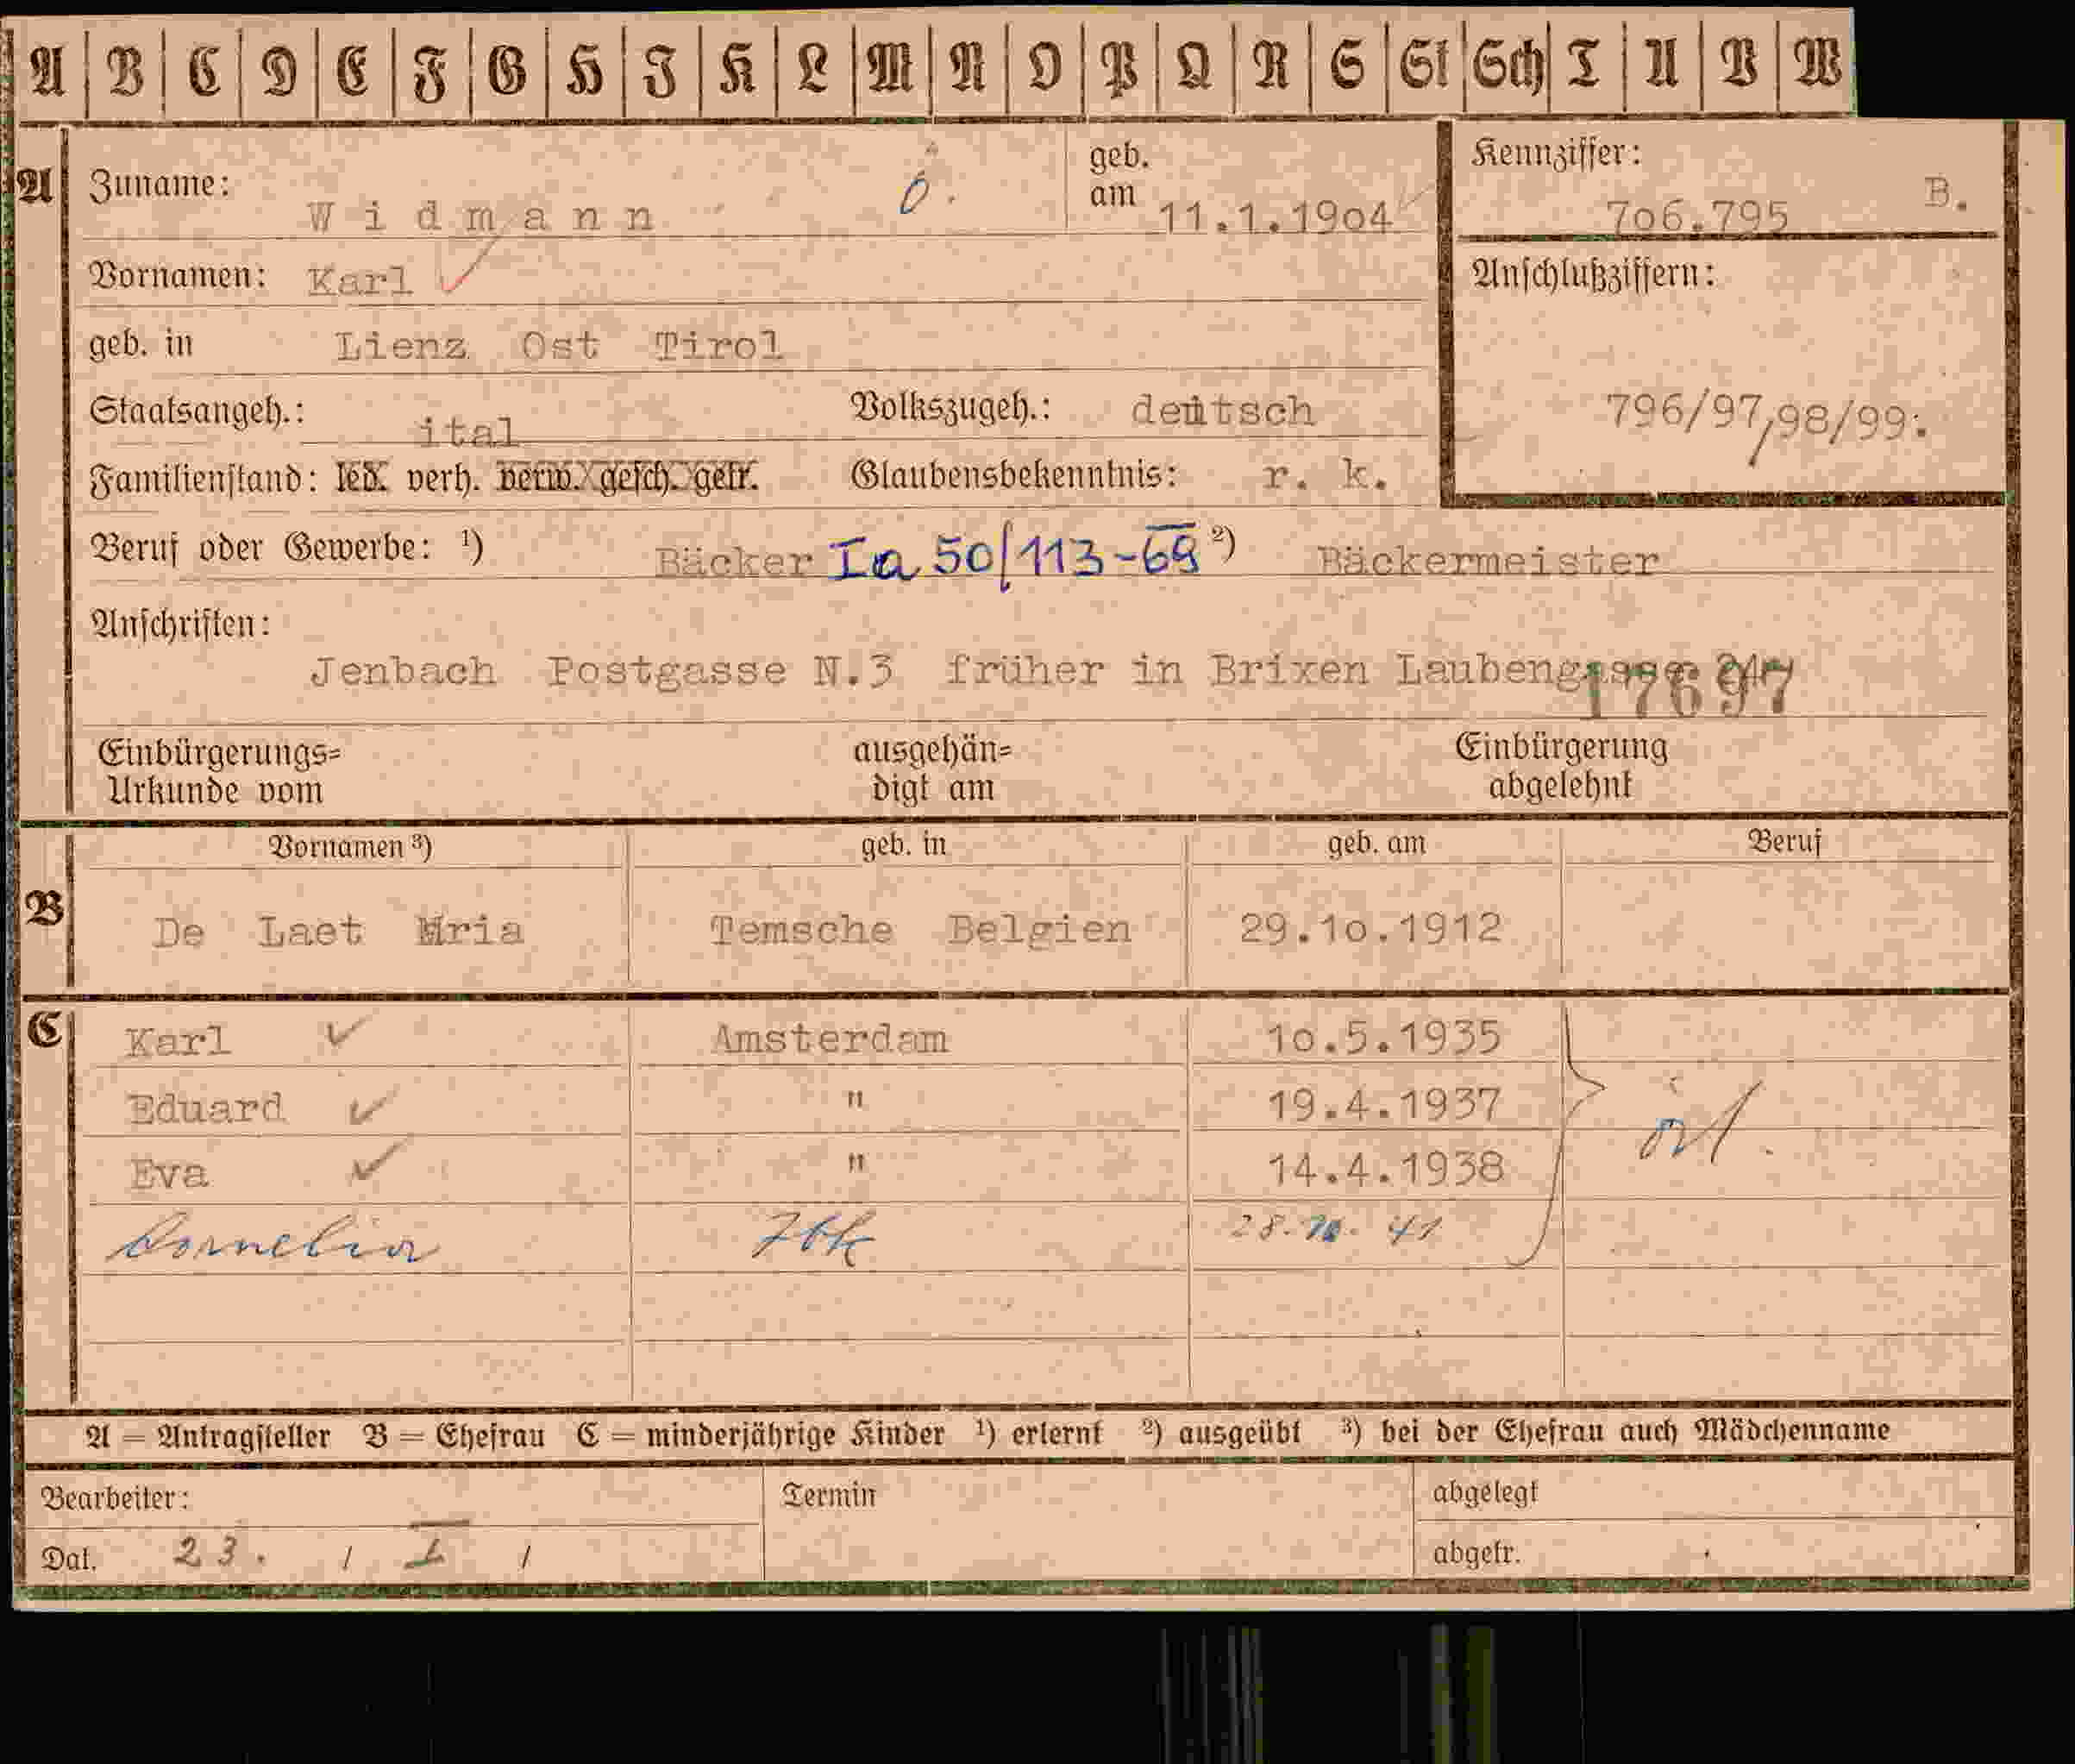 A B C D E F G H I K L M N O P Q R S St Sch T U V W
A Zuname: Widmann Ö. geb. am 11.1.1904
Kennziffer: 706.795 B.
Vornamen: Karl
Anschlußziffern:
geb. in Lienz Ost Tirol
796/97,98/99.
Staatsangeh.: ital Volkszugeh.: deutsch
Familienstand: led. verh. verw. gesch. getr. Glaubensbekenntnis: r. k.
Beruf oder Gewerbe: ¹) Bäcker Ia 50/113-69 ²) Bäckermeister
Anschriften:
Jenbach Postgasse N.3 früher in Brixen Laubengasse
17697
Einbürgerungs= ausgehän= Einbürgerung
Urkunde vom digt am abgelehnt
Vornamen ³) geb. in geb. am Beruf
B De Laet Mria Temsche Belgien 29.10.1912
C Karl Amsterdam 10.5.1935
Eduard " 19.4.1937
Eva " 14.4.1938
Cornelia Ibk 28. 41
A = Antragsteller B = Ehefrau C = minderjährige Kinder ¹) erlernt ²) ausgeübt ³) bei der Ehefrau auch Mädchenname
Bearbeiter: Termin abgelegt
Dat. 23. / I / abgetr.